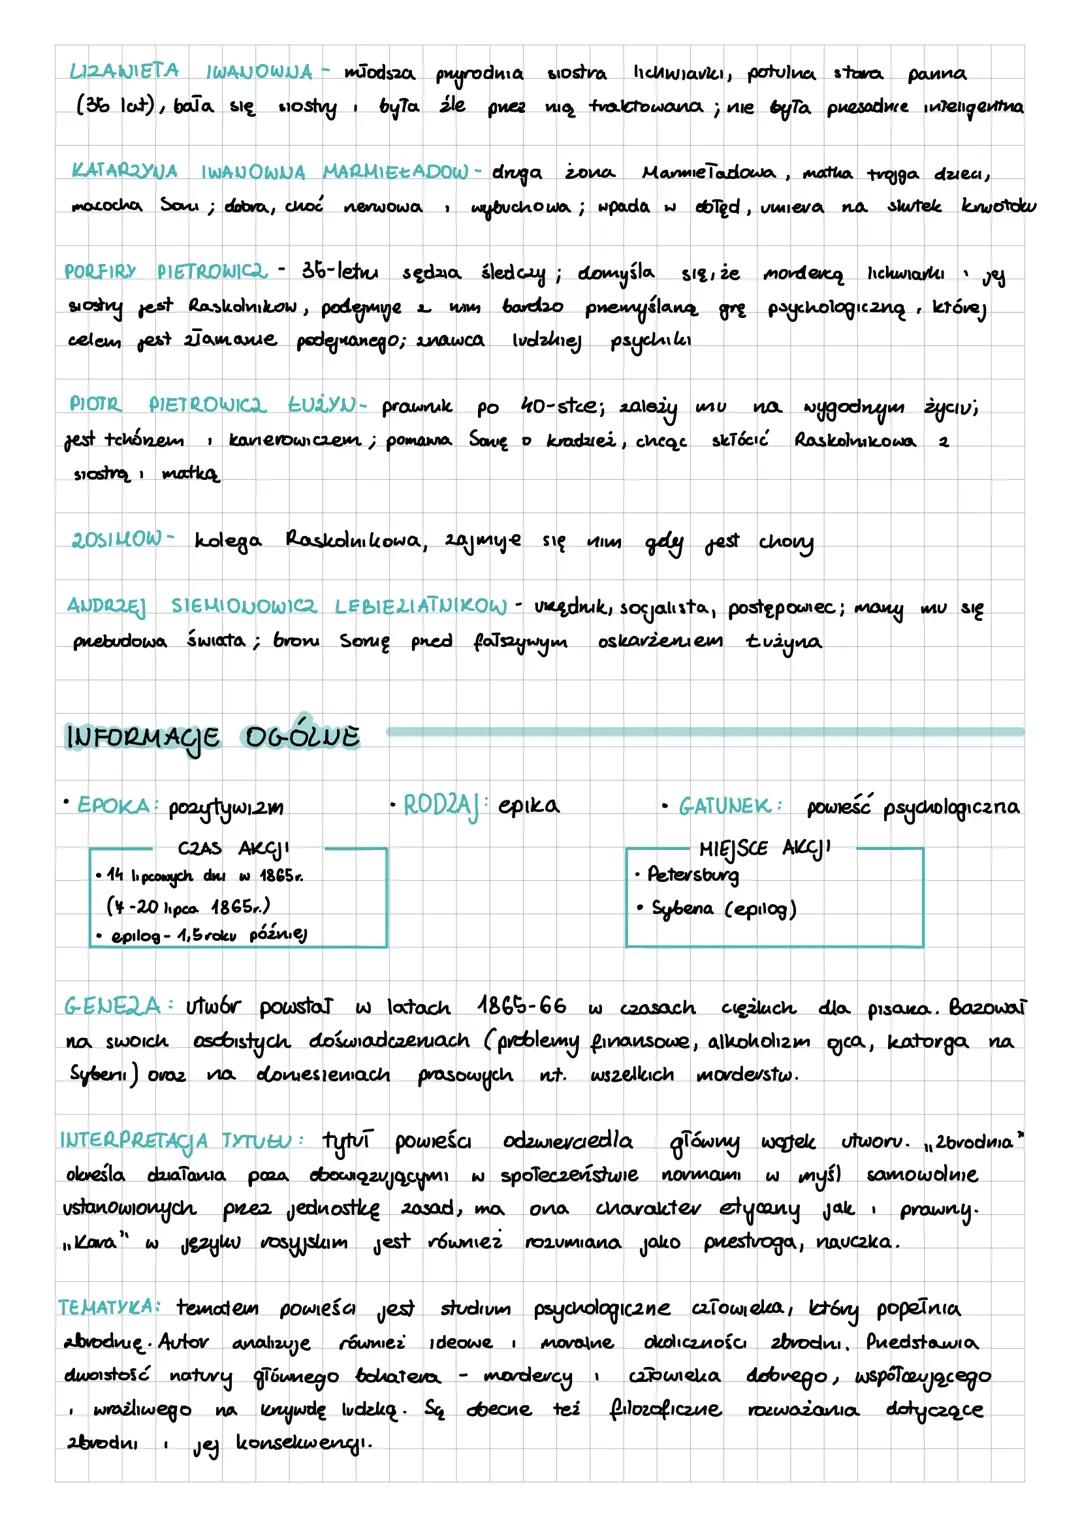 LIZAWIETA IWANOWNA - młodsza przyrodnia siostra lichwiarki, potulna stara panna
(35 lat), bała się siostry i była źle przez nią traktowana; nie była przesadnie inteligentna
KATARZYNA IWANOWNA MARMIEŁADOW - druga żona Marmieładowa, matka trojga dzieci,
macocha Soni; dobra, choć nerwowa i wybuchowa; wpada w obłęd, umiera na skutek krwotoku
PORFIRY PIETROWICZ - 35-letni sędzia śledczy; domyśla się, że mordercą lichwiarki i jej
siostry jest Raskolnikow, podejmuje z nim bardzo przemyślaną grę psychologiczną, której
celem jest złamanie podejrzanego; znawca ludzkiej psychiki
PIOTR PIETROWICZ ŁUŻYN - prawnik po 40-stce; zależy mu na wygodnym życiu;
jest tchórzem i karierowiczem; pomawia Sonię o kradzież, chcąc skłócić Raskolnikowa z
siostrą i matką
ZOSIMOW - kolega Raskolnikowa, zajmuje się nim gdy jest chory
ANDRZEJ SIEMIONOWICZ LEBIEZIATNIKOW - urzędnik, socjalista, postępowiec; marzy mu się
przebudowa świata; broni Sonię przed fałszywym oskarżeniem Łużyna
INFORMACJE OGÓLNE
• EPOKA: pozytywizm • RODZAJ: epika • GATUNEK: powieść psychologiczna
CZAS AKCJI
• 14 lipcowych dni w 1865r.
(7-20 lipca 1865r.)
• epilog - 1,5 roku później
MIEJSCE AKCJI
• Petersburg
• Syberia (epilog)
GENEZA: utwór powstał w latach 1865-66 w czasach ciężkich dla pisarza. Bazował
na swoich osobistych doświadczeniach (problemy finansowe, alkoholizm ojca, katorga na
Syberii) oraz na doniesieniach prasowych nt. wszelkich morderstw.
INTERPRETACJA TYTUŁU: tytuł powieści odzwierciedla główny wątek utworu. „Zbrodnia"
określa działania poza obowiązującymi w społeczeństwie normami w myśl samowolnie
ustanowionych przez jednostkę zasad, ma ona charakter etyczny jak i prawny.
„Kara" w języku rosyjskim jest również rozumiana jako przestroga, nauczka.
TEMATYKA: tematem powieści jest studium psychologiczne człowieka, który popełnia
zbrodnię. Autor analizuje również ideowe i moralne okoliczności zbrodni. Przedstawia
dwoistość natury głównego bohatera - mordercy i człowieka dobrego, współczującego
i wrażliwego na krzywdę ludzką. Są obecne też filozoficzne rozważania dotyczące
zbrodni i jej konsekwencji.